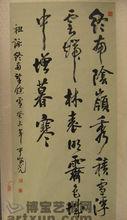 終南陰嶺秀積雪浮
雲端林表明霽色城
中增暮寒
祖詠終南望餘雪
博宝艺术网